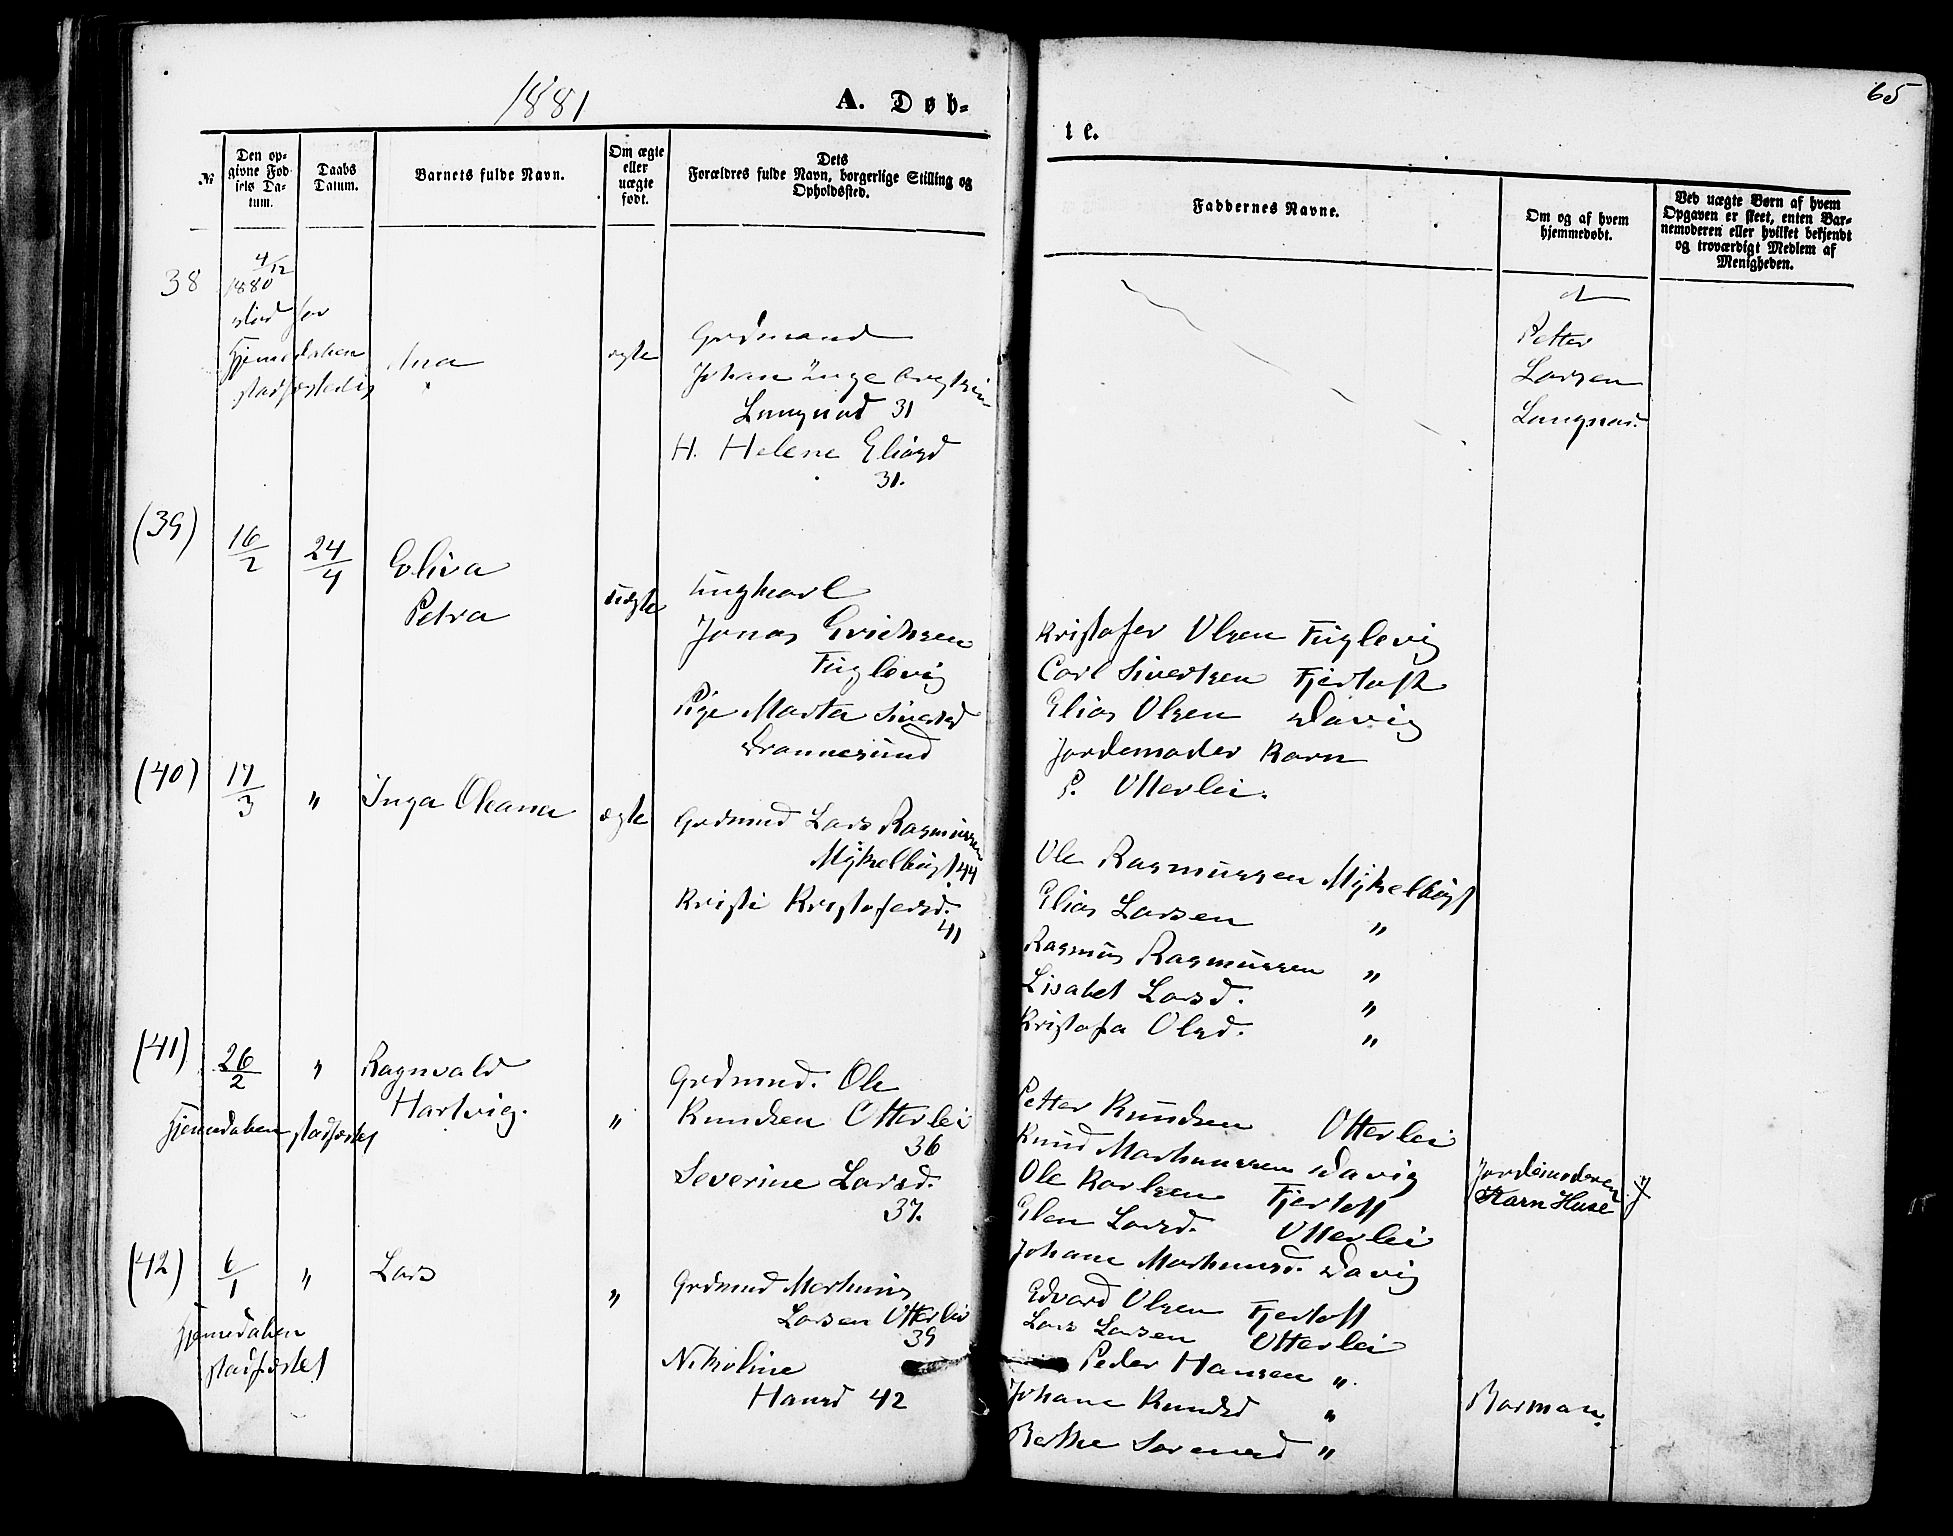 1881
A. Døb-
te.
65
№
Den op-
givne Fød-
sels Da-
tum.
Daabs
Datum.
Barnets fulde Navn.
Om ægte
eller
uægte
født.
Dets
Forældres fulde Navn, borgerlige Stilling og
Opholdssted.
Faddernes Navne.
Om og af hvem
hjemmedøbt.
Ved uægte Børn af hvem
Opgaven er skeet, enten Bar-
nemoderen eller hvilket bekjendt
og troværdigt Medlem af
Menigheden.
38
4/12
1880
død før
hjemedaben
stadfæstedes
Ana
ægte
Grdmand
Johan Ingebregtsen
Longvad 31
H. Helene Eliasd
31.
af
Petter
Larsen
Longvad.
(39)
16/2
24/4
Eliva
Petra
uægte
Ungkarl
Jonas Erichsen
Fuglevig
Pige Marta Sivertsd
Drønnesund
Kristofer Olsen Fuglevig
Carl Sivertsen Fjertoft
Elias Olsen Davig
Jordemoder Karn
P. Otterlei.
(40)
17/3
"
Inga Oleana
ægte
Grdmnd Lars Rasmussen
Myklebust 44
Kristi Kristofersd.
41
Ole Rasmussen Myklebust
Elias Larsen "
Rasmus Rasmussen "
Lisabet Larsd. "
Kristofa Olsd. "
(41)
26/2
"
Ragnvald
Hartvig.
hjemedaben stadfæstet
"
Grdmnd. Ole
Knudsen Otterlei
36
Severine Larsd.
37.
Petter Knudsen Otterlei
Knud Markussen Davig
Ole Karlsen Fjertoft
Elen Larsd. Otterlei
Johane Markusd. Davig
Jordemoderen
Karn Huse
(42)
6/1
"
Lars
hjemedaben
stadfæstet
"
Grdmnd Markus
Larsen Otterlei
39
Nikoline
Hansd 42
Edvard Olsen Fjertoft
Lars Larsen Otterlei
Peder Hansen "
Johane Knudsd "
Berthe Sørensd "
Barman.